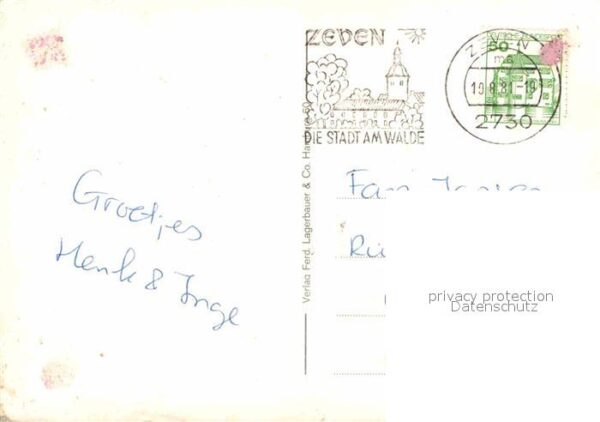 ZEVEN
DIE STADT AM WALDE
50
2730
Verlag Ferd. Lagerbauer & Co.
Groetjes
Henk & Inge
Fam
privacy protection
Datenschutz